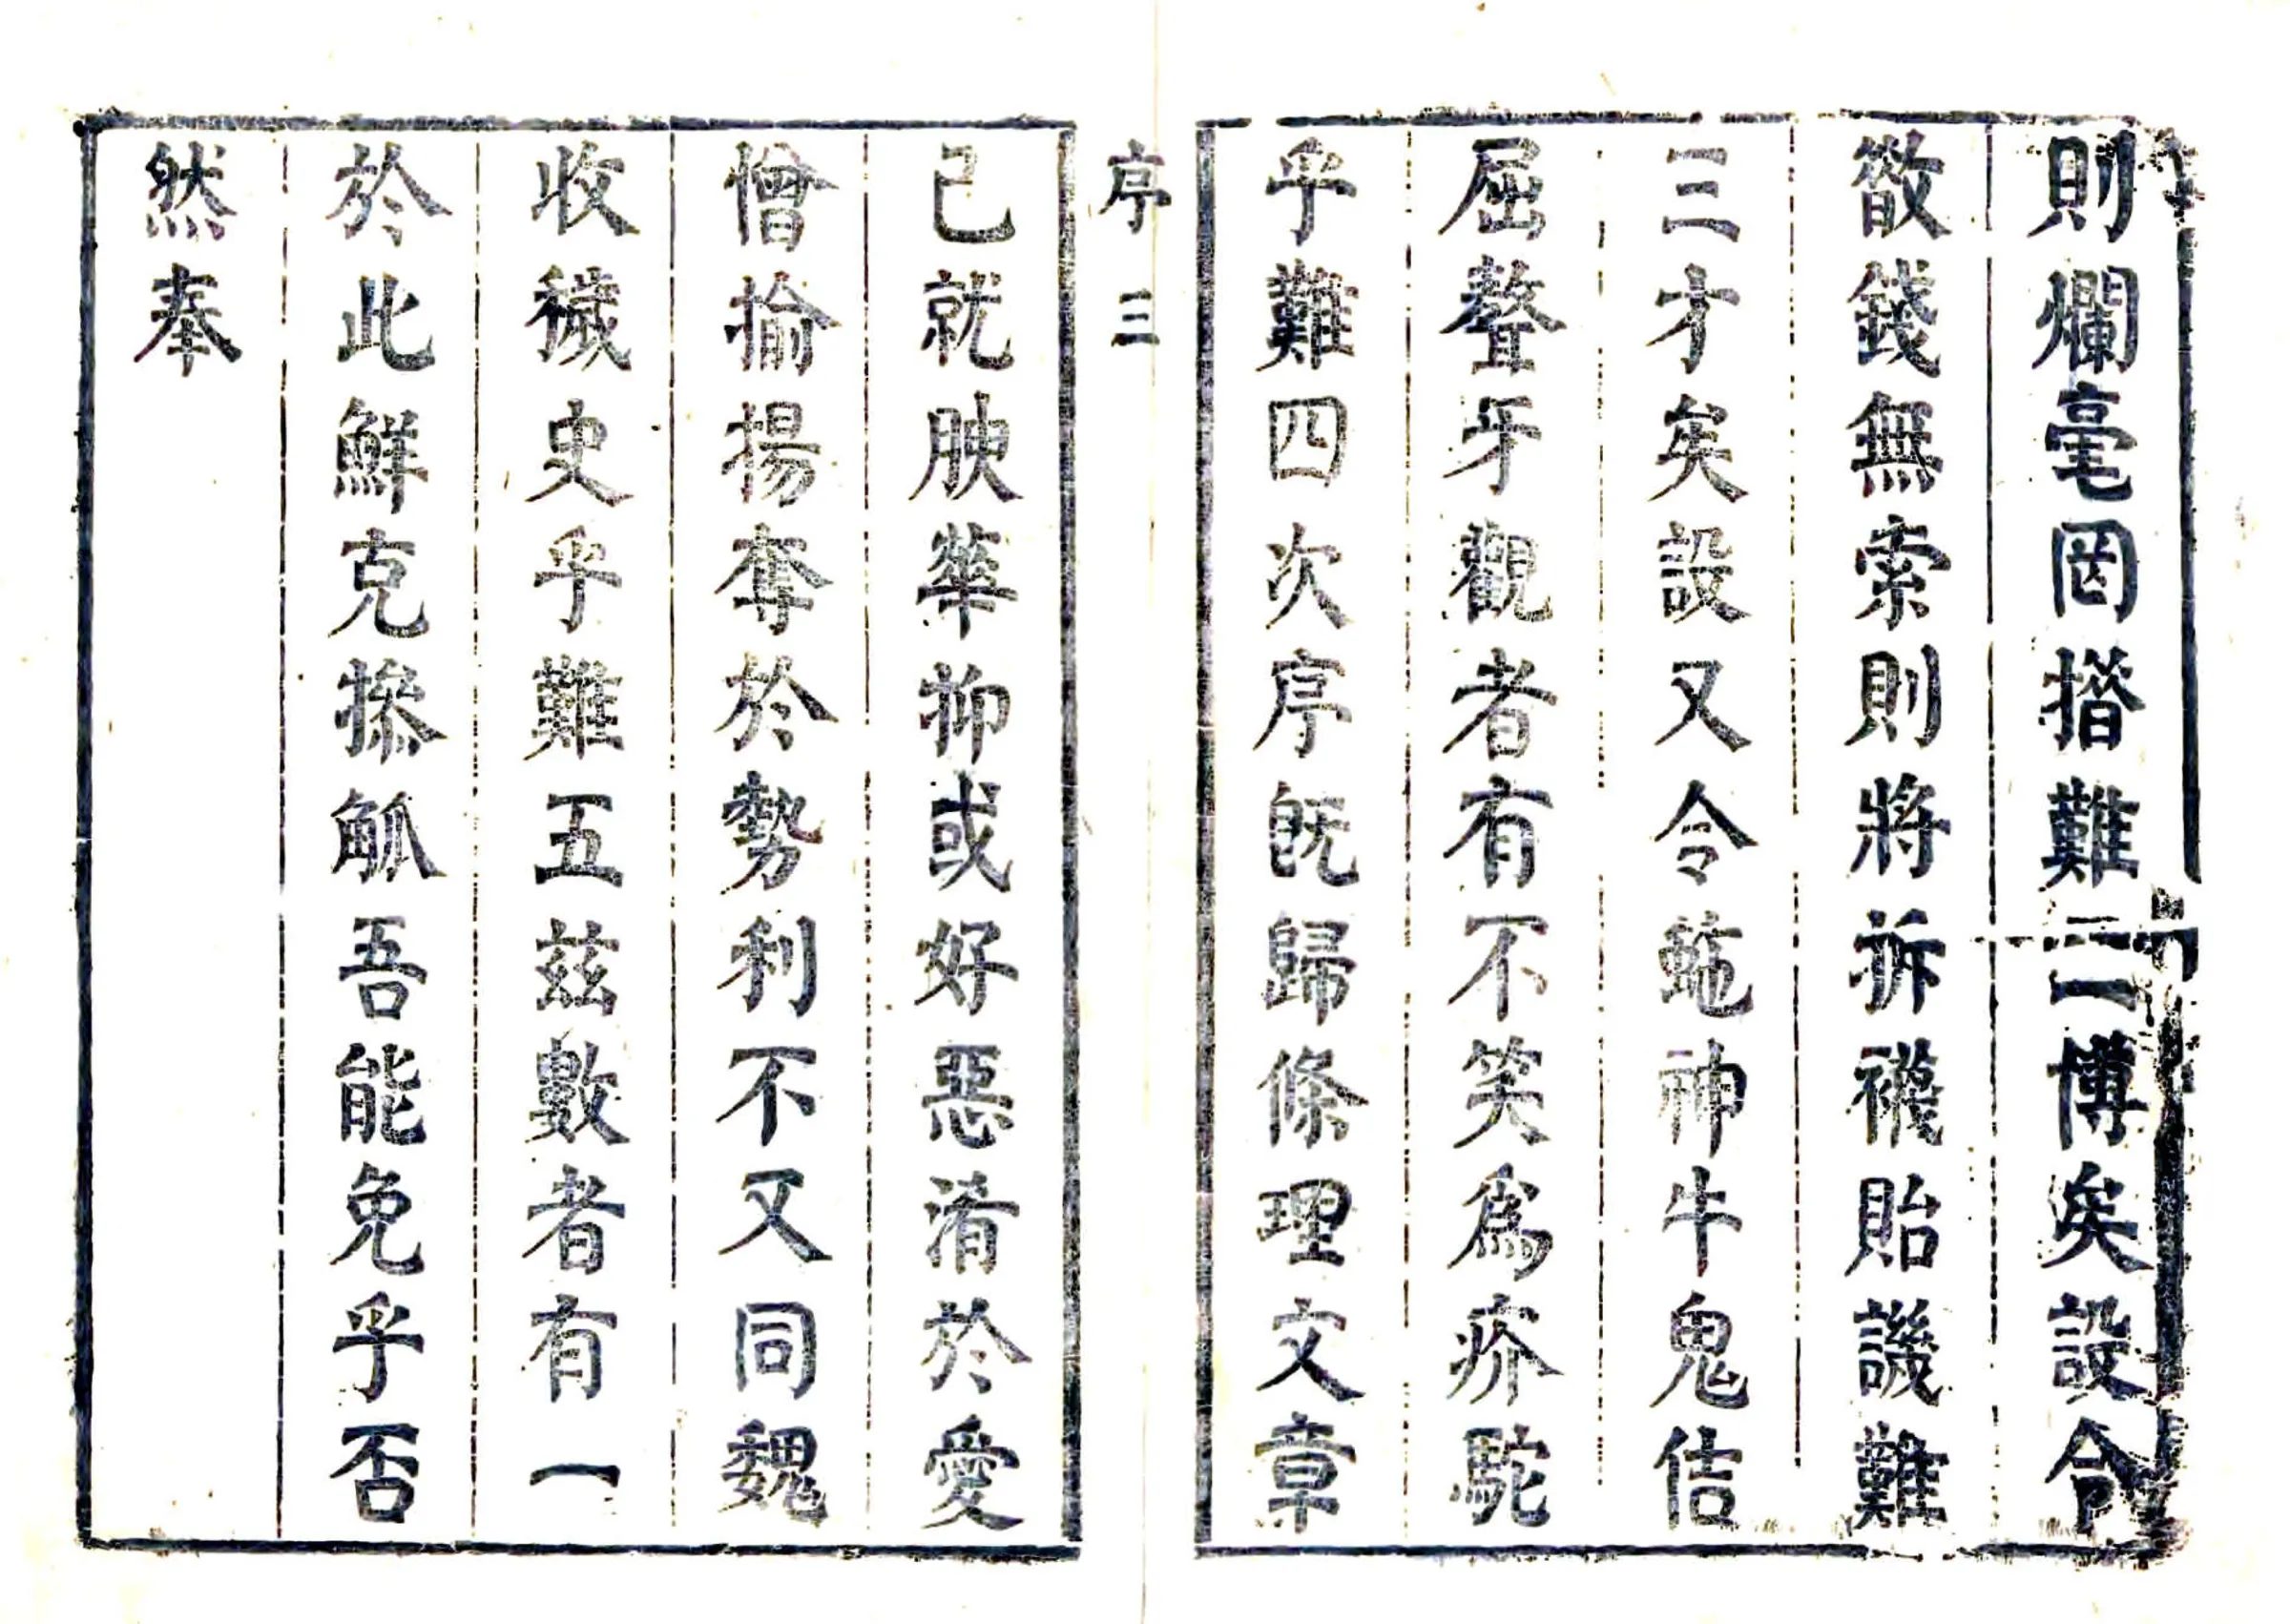 則爛毫罔揩難二博矣設令
散錢無索則將拆襪貽譏難
三才矣設又令虵神牛鬼佶
屈聱牙觀者有不笑爲疥駝
乎難四次序旣歸條理文章
序 三
已就腴華抑或好惡淆於愛
憎揄揚奪於勢利不又同魏
收穢史乎難五茲數者有一
於此鮮克摻觚吾能免乎否
然奉